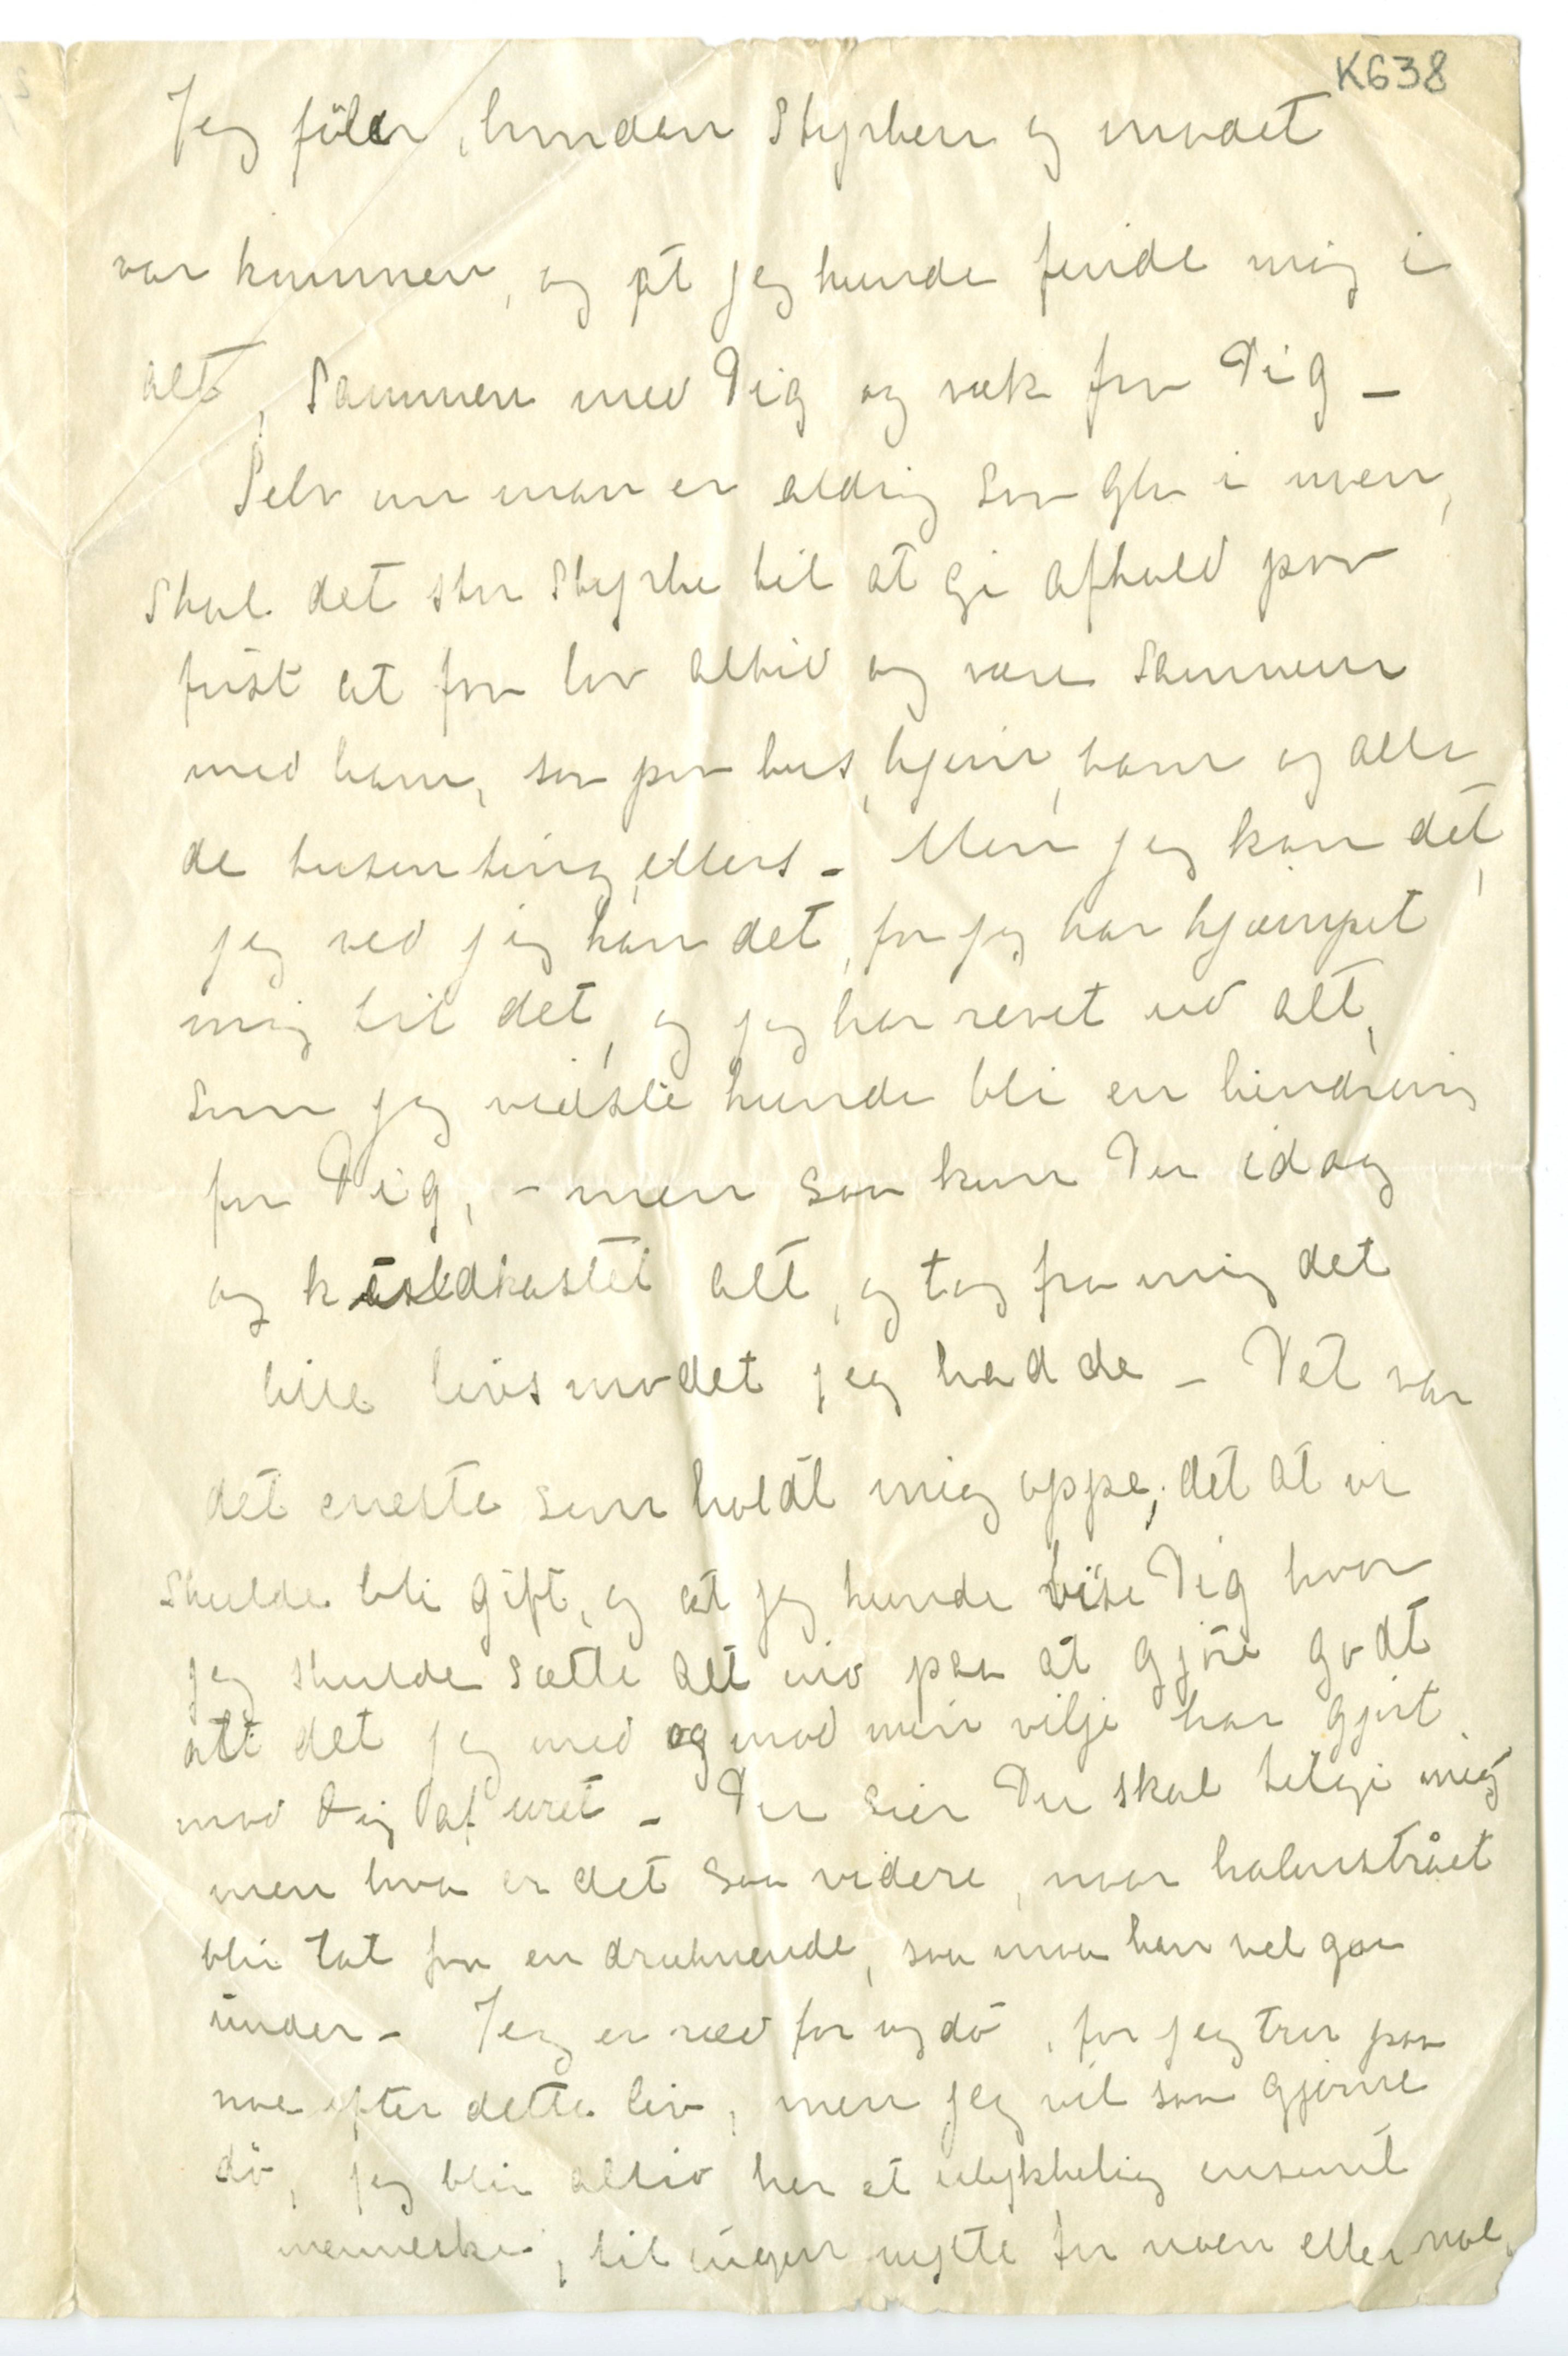 K638
Jeg föler, hvordan Styrken og modet
var kommen, og at jeg kunde finde mig i
alt, Sammen med Dig og væk fra Dig –
Selv om man er aldrig saa gla i noen,
Skal det stor Styrke til at gi afkald paa
först at faa lov altid og være Sammen
med ham, saa paa hus, hjem, barn og alle
de tusen ting ellers – Men jeg kan det,
jeg ved jeg kan det, for jeg har kjæmpet
mig til det, og jeg har revet ud alt,
som jeg vidste kunde bli en hindring
for Dig, – men saa kom Du idag
og kuldkastet alt, og tog fra mig det
lille livsmodet jeg hadde – Det var
det eneste som holdt mig oppe, det at vi
skulde bli gift, og at jeg kunde vise Dig hvor
jeg skulde sætte alt ind paa at gjöre godt
alt det jeg med og mod min vilje har gjort
mod Dig af uret – Du sier Du skal tilgi mig
men hva er det saa videre, naar halmstrået
blir tat fra en druknende, saa maa han vel gaa
under – Jeg er ræd for og dö, for jeg tror paa
noe efter dette liv, men jeg vil saa gjerne
dö, jeg blir altid her et ulykkelig ensomt
menneske, til ingen nytte for noen eller noe,